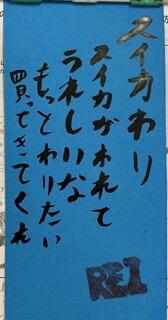 スイカわり
スイカがわれて
うれしいな
もっとわりたい
買ってきてくれ
RE1